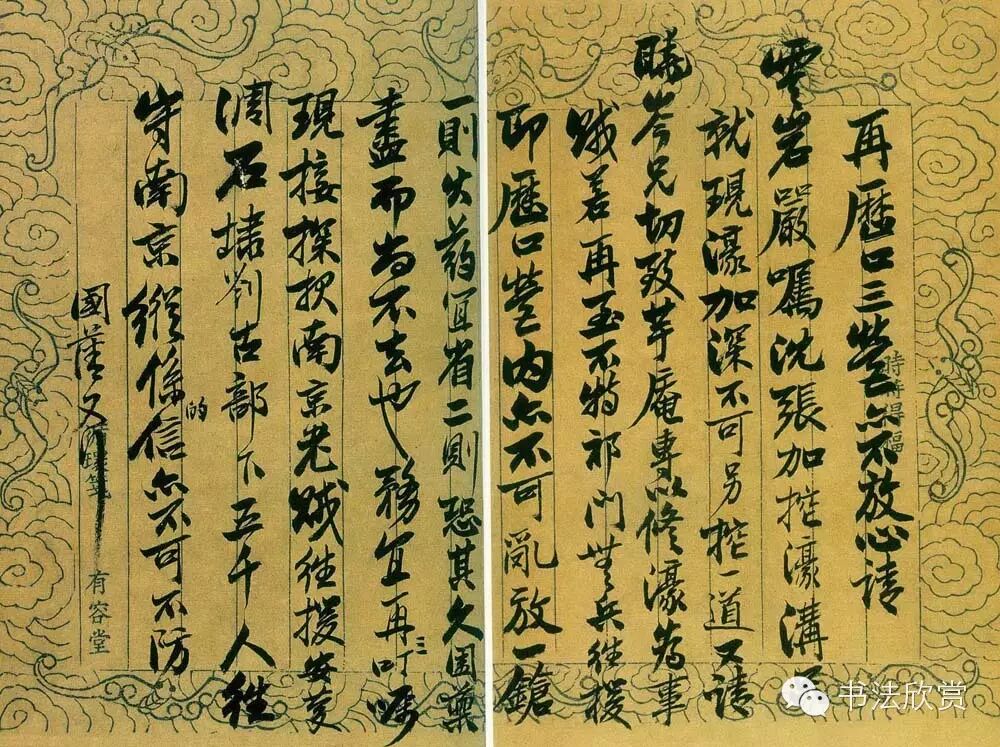 再歷口三營亦不放心請
雲岩嚴囑沈張加挖濠溝
就現濠加深不可另挖一道又請
曉岑兄切致芋庵專以修濠為事
賊若再至不特祁門無兵往援
即歷口營內亦不可亂放一鎗
一則火葯宜省二則恐其久困藥
盡而尚不去也務宜再三叮嘱
現接探報南京老賊往援安慶
調石埭劉古部下五千人往
守南京縱係的信亦不可不防
國藩又
有容堂
书法欣赏